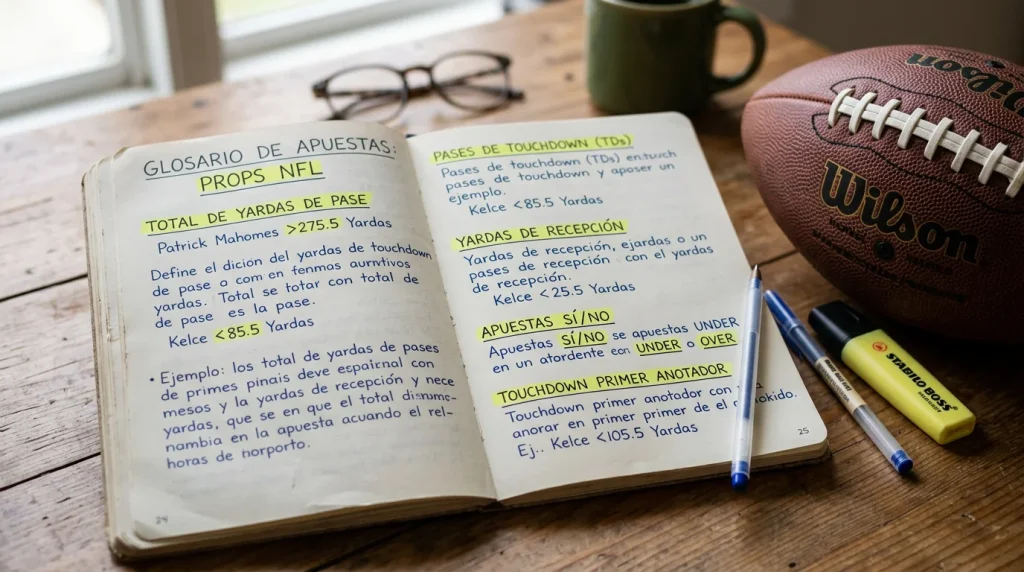 GLOSARIO DE APUESTAS:
PROPS NFL
TOTAL DE YARDAS DE PASE
Patrick Mahomes >275.5 Yardas
Define el dición del yardas de touchdown
de pase a com en tenmas aurntivos
yardas. Total se totar con total de
de pase es la pase.
Kelce <85.5 Yardas
• Ejemplo: los total de yardas de pases
de primes pinais deve espairnal con
mesos y la yardas de recepción y nece
yardas, que se en que el total disrume-
nambia en la apuesta acuando el rel-
horas de norporto.
24
PASES DE TOUCHDOWN (TDs)
Pases de touchdown (TDs) entuch
pases de touchdown y aposer un
ejemplo.
Kelce <85.5 Yardas
YARDAS DE RECEPCIÓN
Yardas de recepción, ejardas o un
pases de recepción con el yardas
de recepción.
Kelce <25.5 Yardas
APUESTAS SÍ/NO
Apuestas SÍ/NO se apuestas UNDER
en un atordente eon UNDER o OVER
TOUCHDOWN PRIMER ANOTADOR
Touchdown primer anotador con
anorar en primer primer de el
Ej.. Kelce <105.5 Yardas
25
Wilson
STABILO BOSS